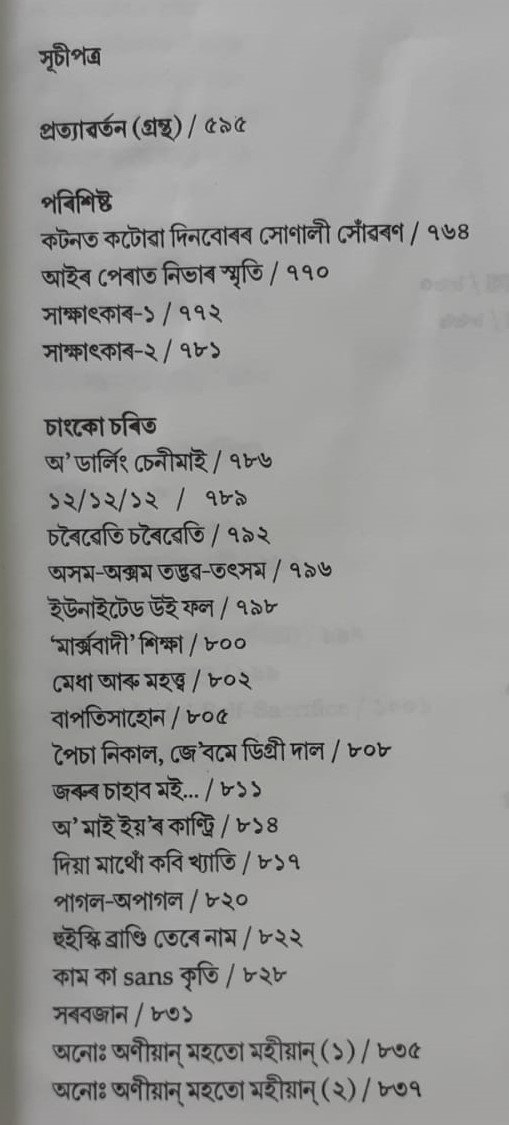 সূচীপত্ৰ
প্ৰত্যাবৰ্তন (গ্ৰন্থ) / ৫৯৫
পৰিশিষ্ট
কটনত কটোৱা দিনবোৰৰ সোণালী সোঁৱৰণ / ৭৬৪
আইৰ পেৰাত নিভাৰ স্মৃতি / ৭৭০
সাক্ষাৎকাৰ-১ / ৭৭২
সাক্ষাৎকাৰ-২ / ৭৮১
চাংকো চৰিত
অ' ডাৰ্লিং চেনীমাই / ৭৮৬
১২/১২/১২ / ৭৮৯
চৰৈবেতি চৰৈবেতি / ৭৯২
অসম-অক্সম তদ্ভৱ-তৎসম / ৭৯৬
ইউনাইটেড উই ফল / ৭৯৮
‘মাৰ্ক্সবাদী’ শিক্ষা / ৮০০
মেধা আৰু মহত্ত্ব / ৮০২
বাপতিসাহোন / ৮০৫
পৈচা নিকাল, জে'বমে ডিগ্ৰী দাল / ৮০৮
জৰুৰ চাহাব মই... / ৮১১
অ' মাই ইয়'ৰ কাণ্ট্ৰি / ৮১৪
দিয়া মাথোঁ কবি খ্যাতি / ৮১৭
পাগল-অপাগল / ৮২০
হুইস্কি ব্ৰাণ্ডি তেৰে নাম / ৮২২
কাম কা sans কৃতি / ৮২৮
সৰবজান / ৮৩১
অনোঃ অণীয়ান্ মহতো মহীয়ান্ (১) / ৮৩৫
অনোঃ অণীয়ান্ মহতো মহীয়ান্ (২) / ৮৩৭